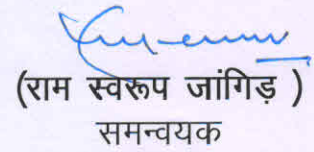 (राम स्वरूप जांगिड़ )
समन्वयक